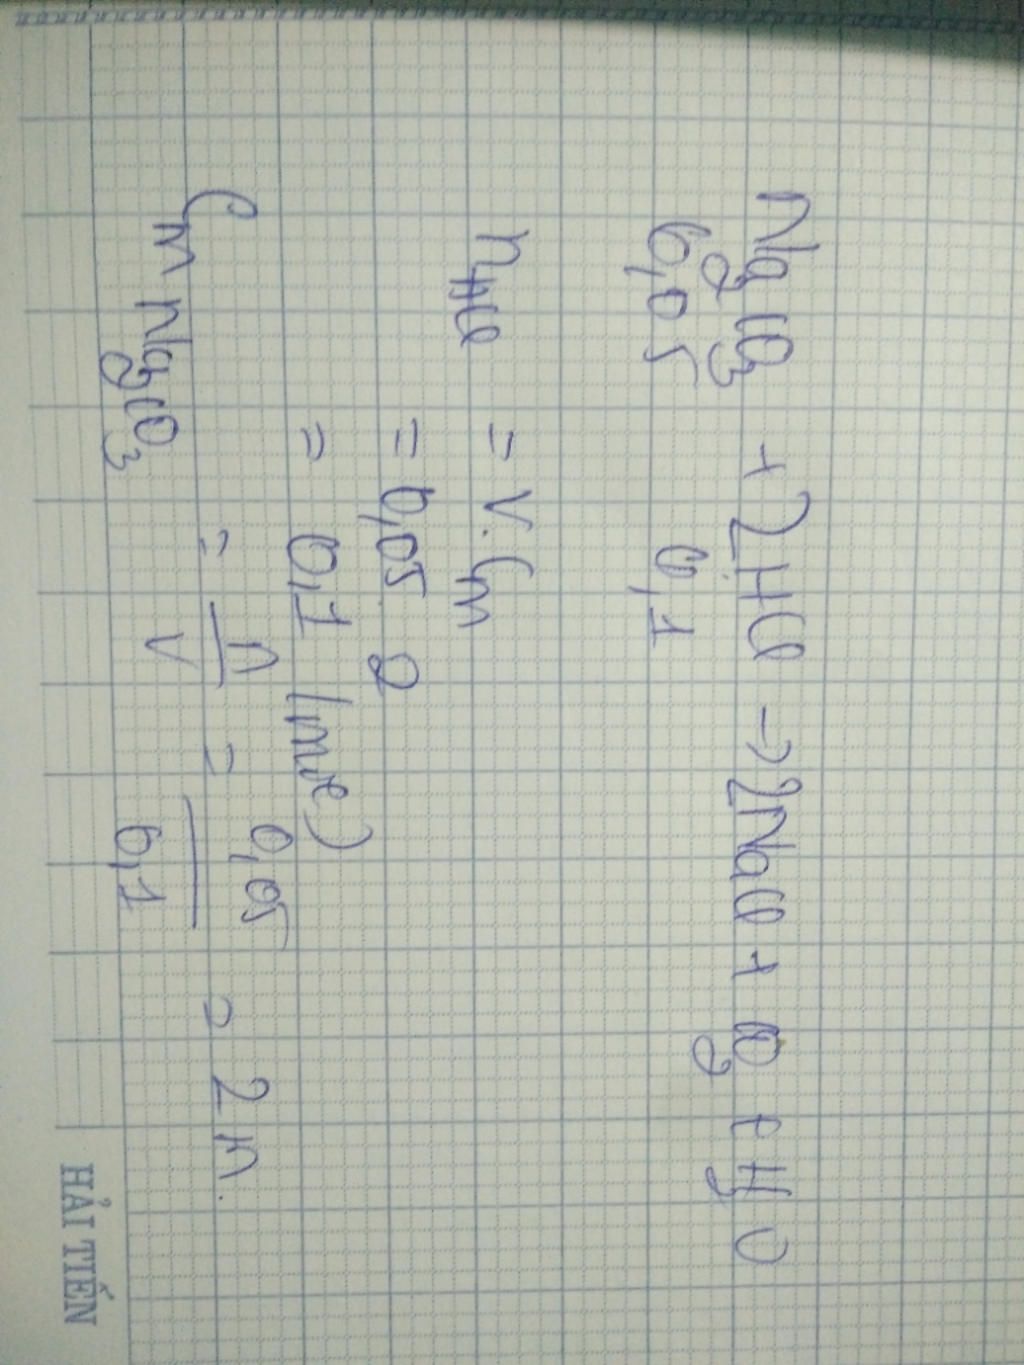 Na2CO3 + 2HCl → 2NaCl + CO2 + H2O
0,05 0,1
nHCl = V.Cm
= 0,05 2
= 0,1 (mol)
Cm Na2CO3 = n/V = 0,05/0,1 = 2 M.
HẢI TIẾN